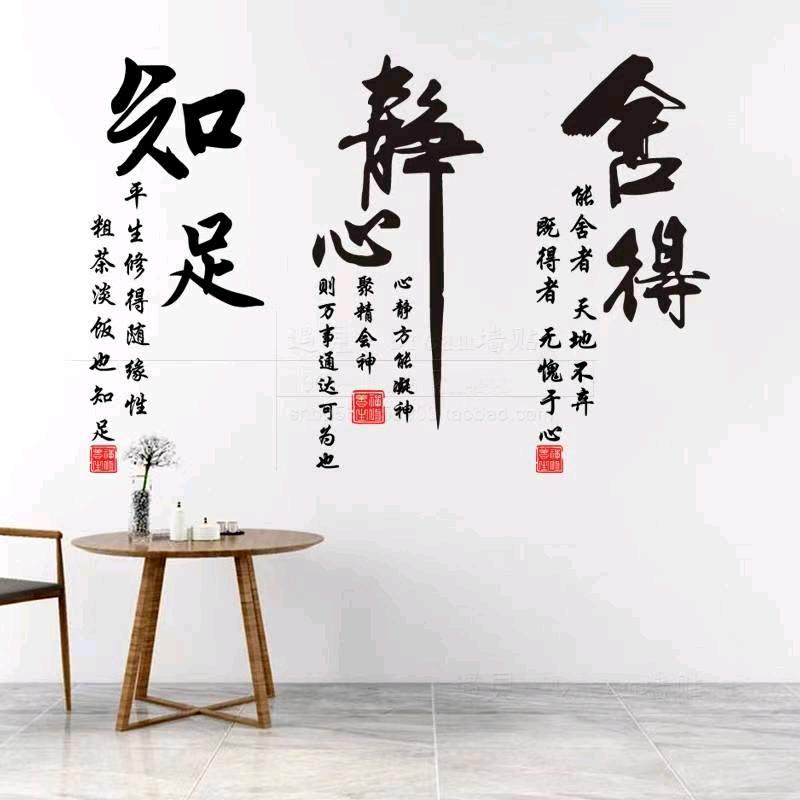 舍得
能舍者 天地不弃
既得者 无愧于心
静心
心静方能凝神
聚精会神
则万事通达可为也
知足
平生修得随缘性
粗茶淡饭也知足